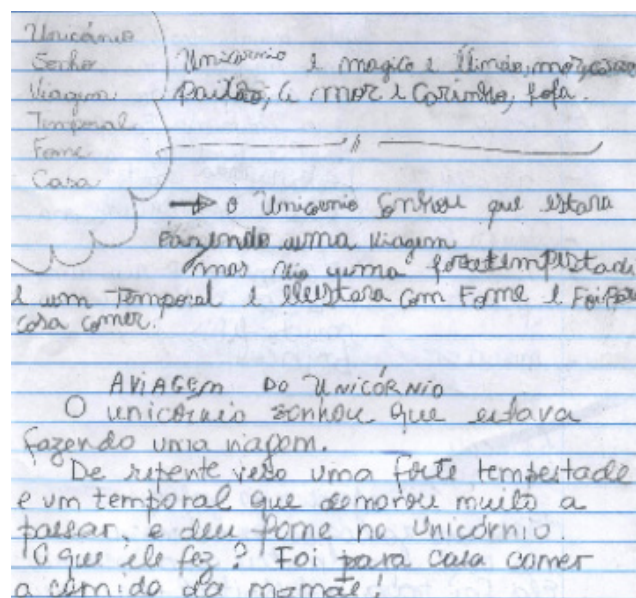 Unicórnio
Sonho
Viagem
Temporal
Fome
Casa
Unicórnio é magico é
paixão, a mor e Carinho, fofa.
→ O Unicornio Sonhou que estava
fazendo uma viagem
mas veio
e um Temporal e com Fome e Foi
casa comer.
A VIAGEM DO UNICÓRNIO
O unicórnio sonhou que estava
fazendo uma viagem.
De repente veio uma forte tempestade
e um temporal que demorou muito a
passar, e deu fome no Unicórnio.
O que ele fez? Foi para casa comer
a comida da mamãe!